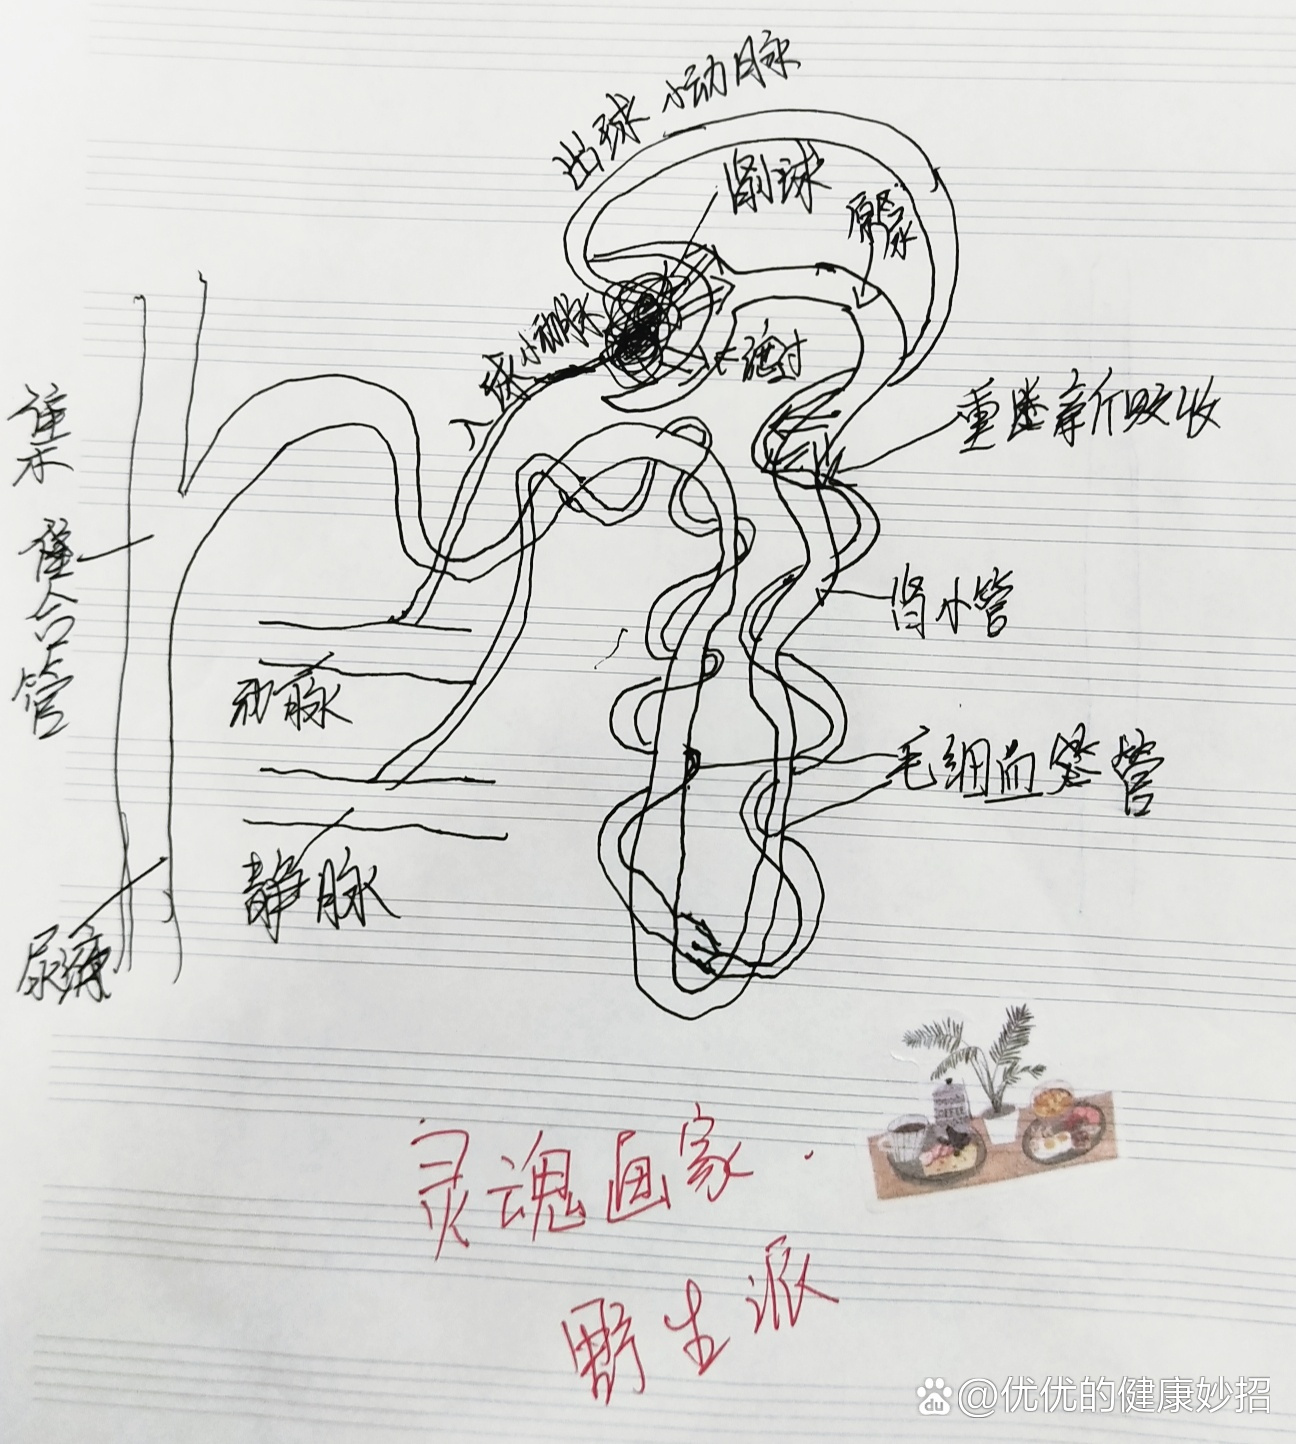 出球小动脉
肾小球
原尿
入球小动脉
滤过
重新吸收
集合管
肾小管
动脉
毛细血管
静脉
尿液
灵魂画家.
野生派
du @优优的健康妙招